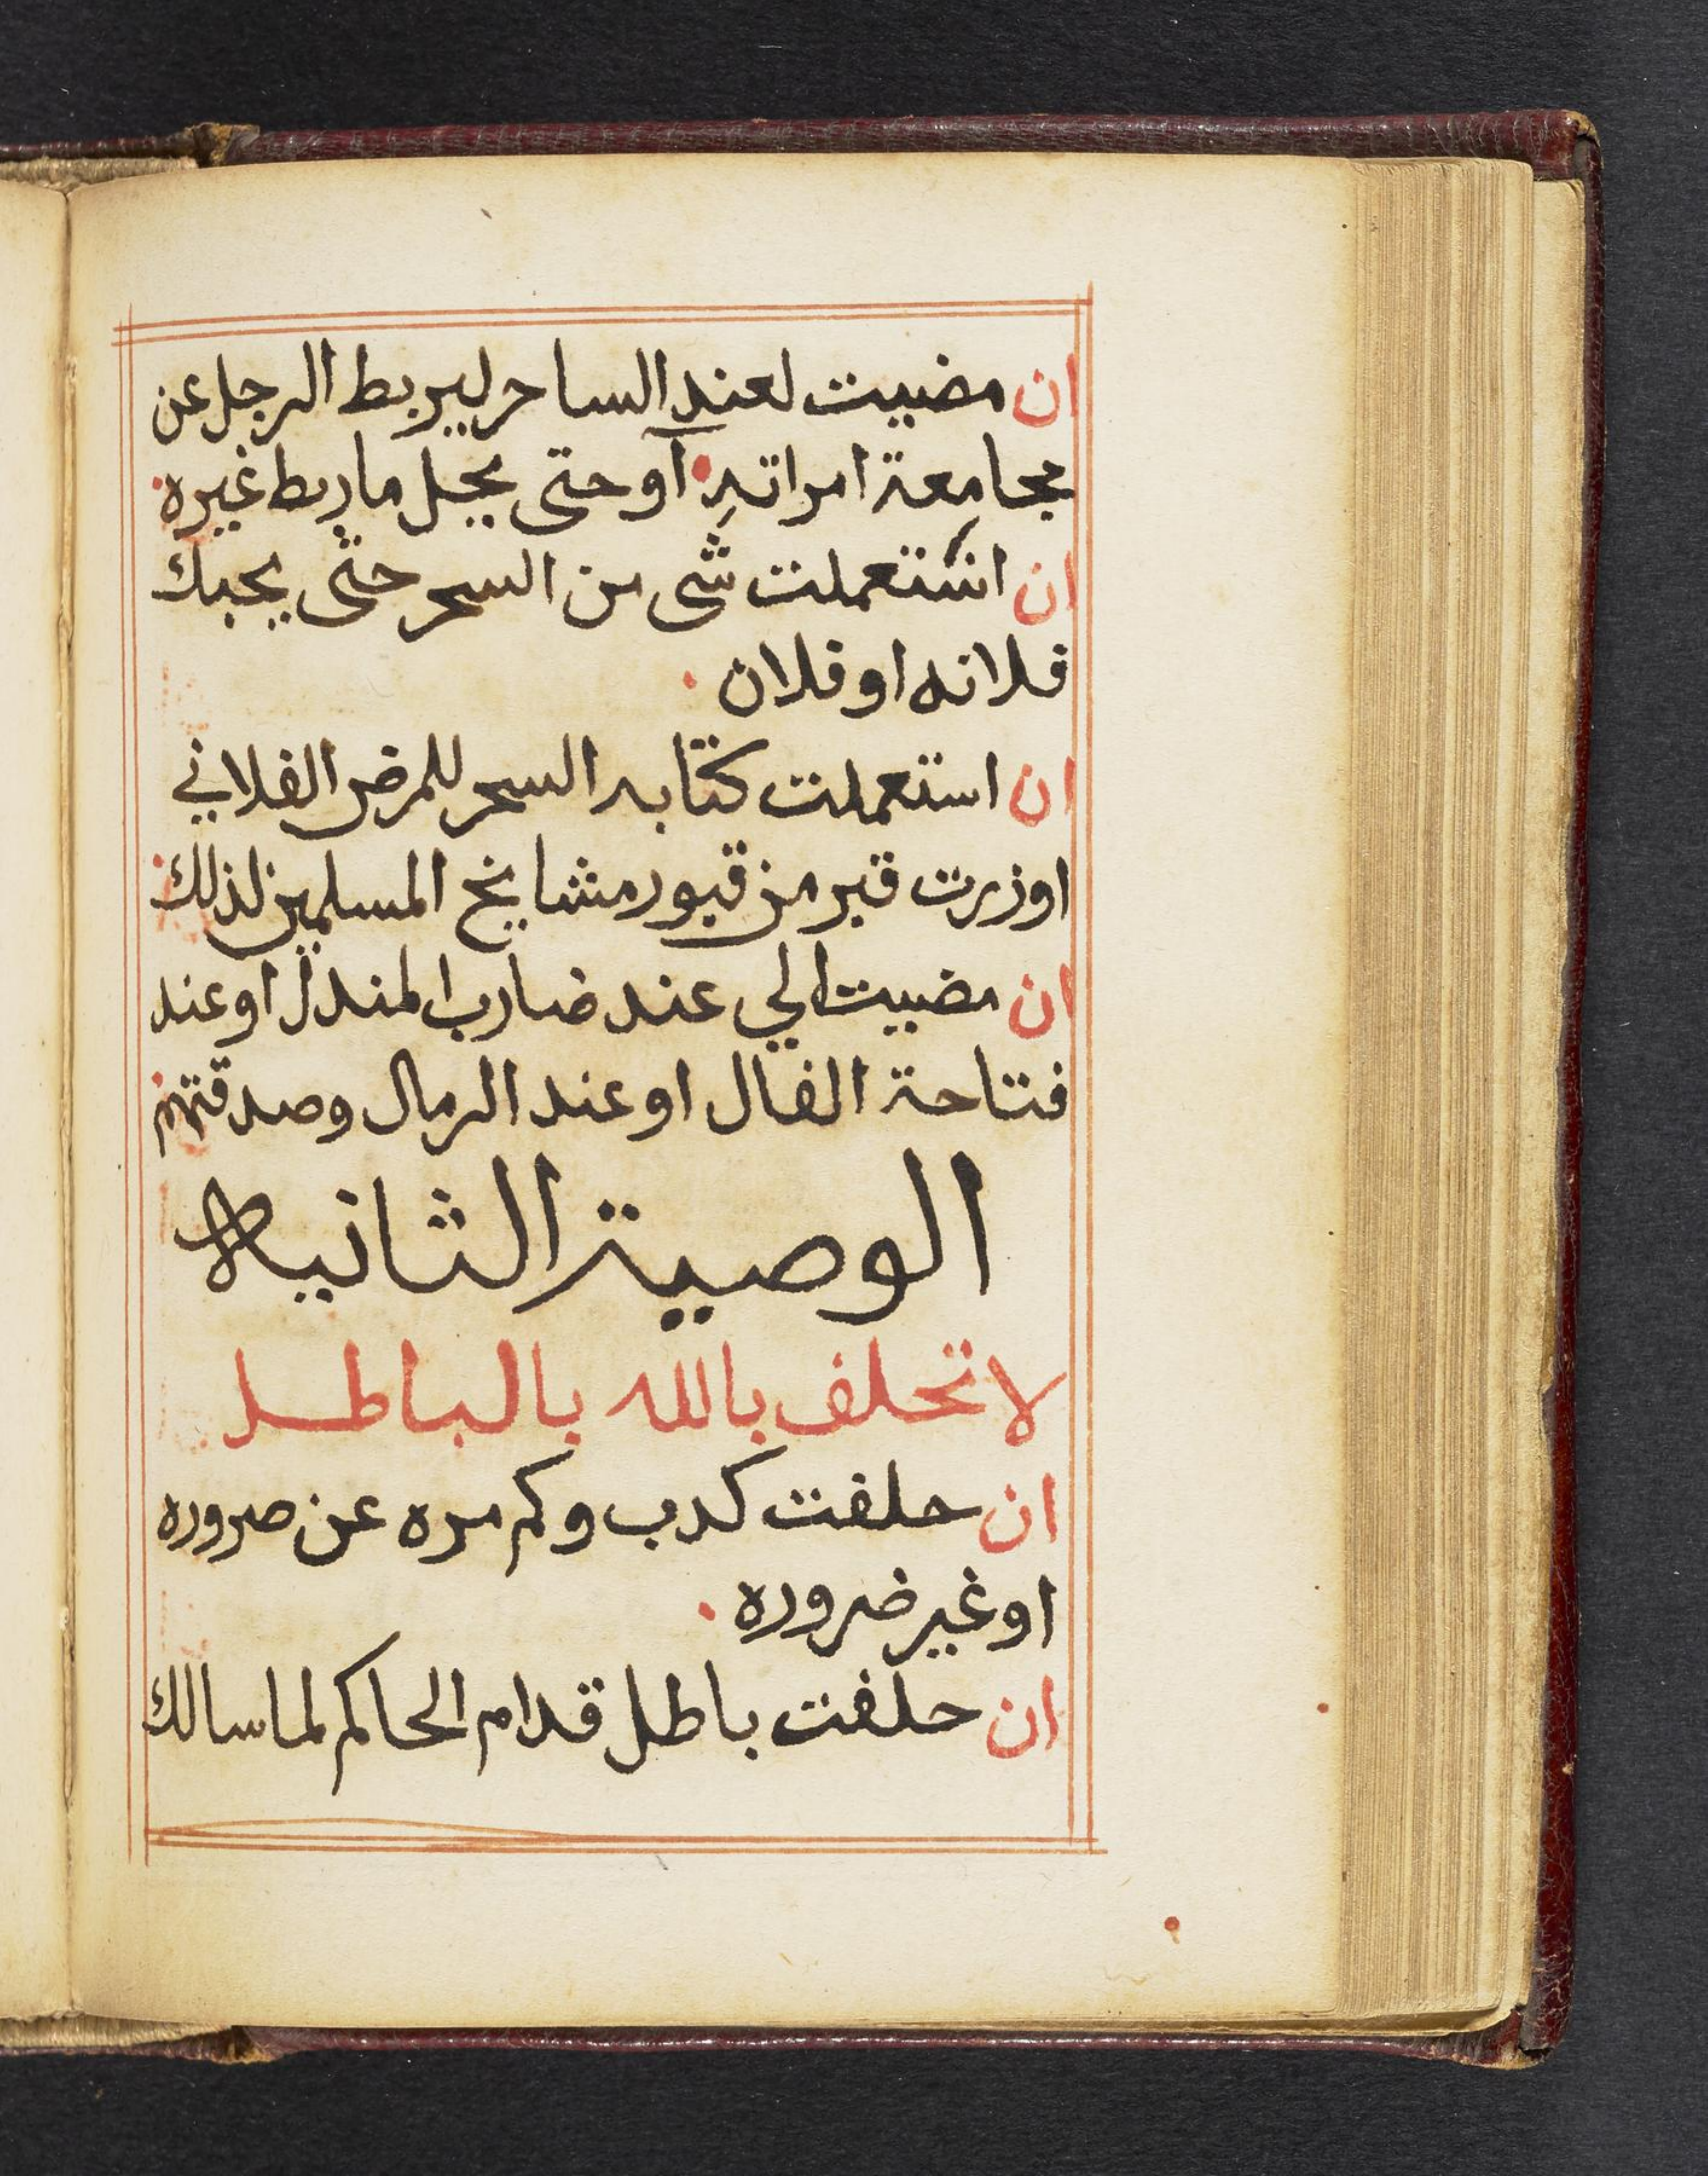 ان مضييت لعند الساحر ليربط الرجل عن
مجامعة امراته او حتى يحل ماربط غيره
ان استعملت شى من السحر حتى يحبك
فلانه او فلان
ان استعملت كتابه السحر للمرض الفلاني
او زرت قبر من قبور مشايخ المسلمين لذلك
ان مضييت الي عند ضارب المندل او عند
فتاحة الفال او عند الرمال وصدقتهم
الوصية الثانيه
لا تحلف بالله بالباطل
ان حلفت كدب وكم مره عن صروره
او غير ضروره
ان حلفت باطل قدام الحاكم لما سالك